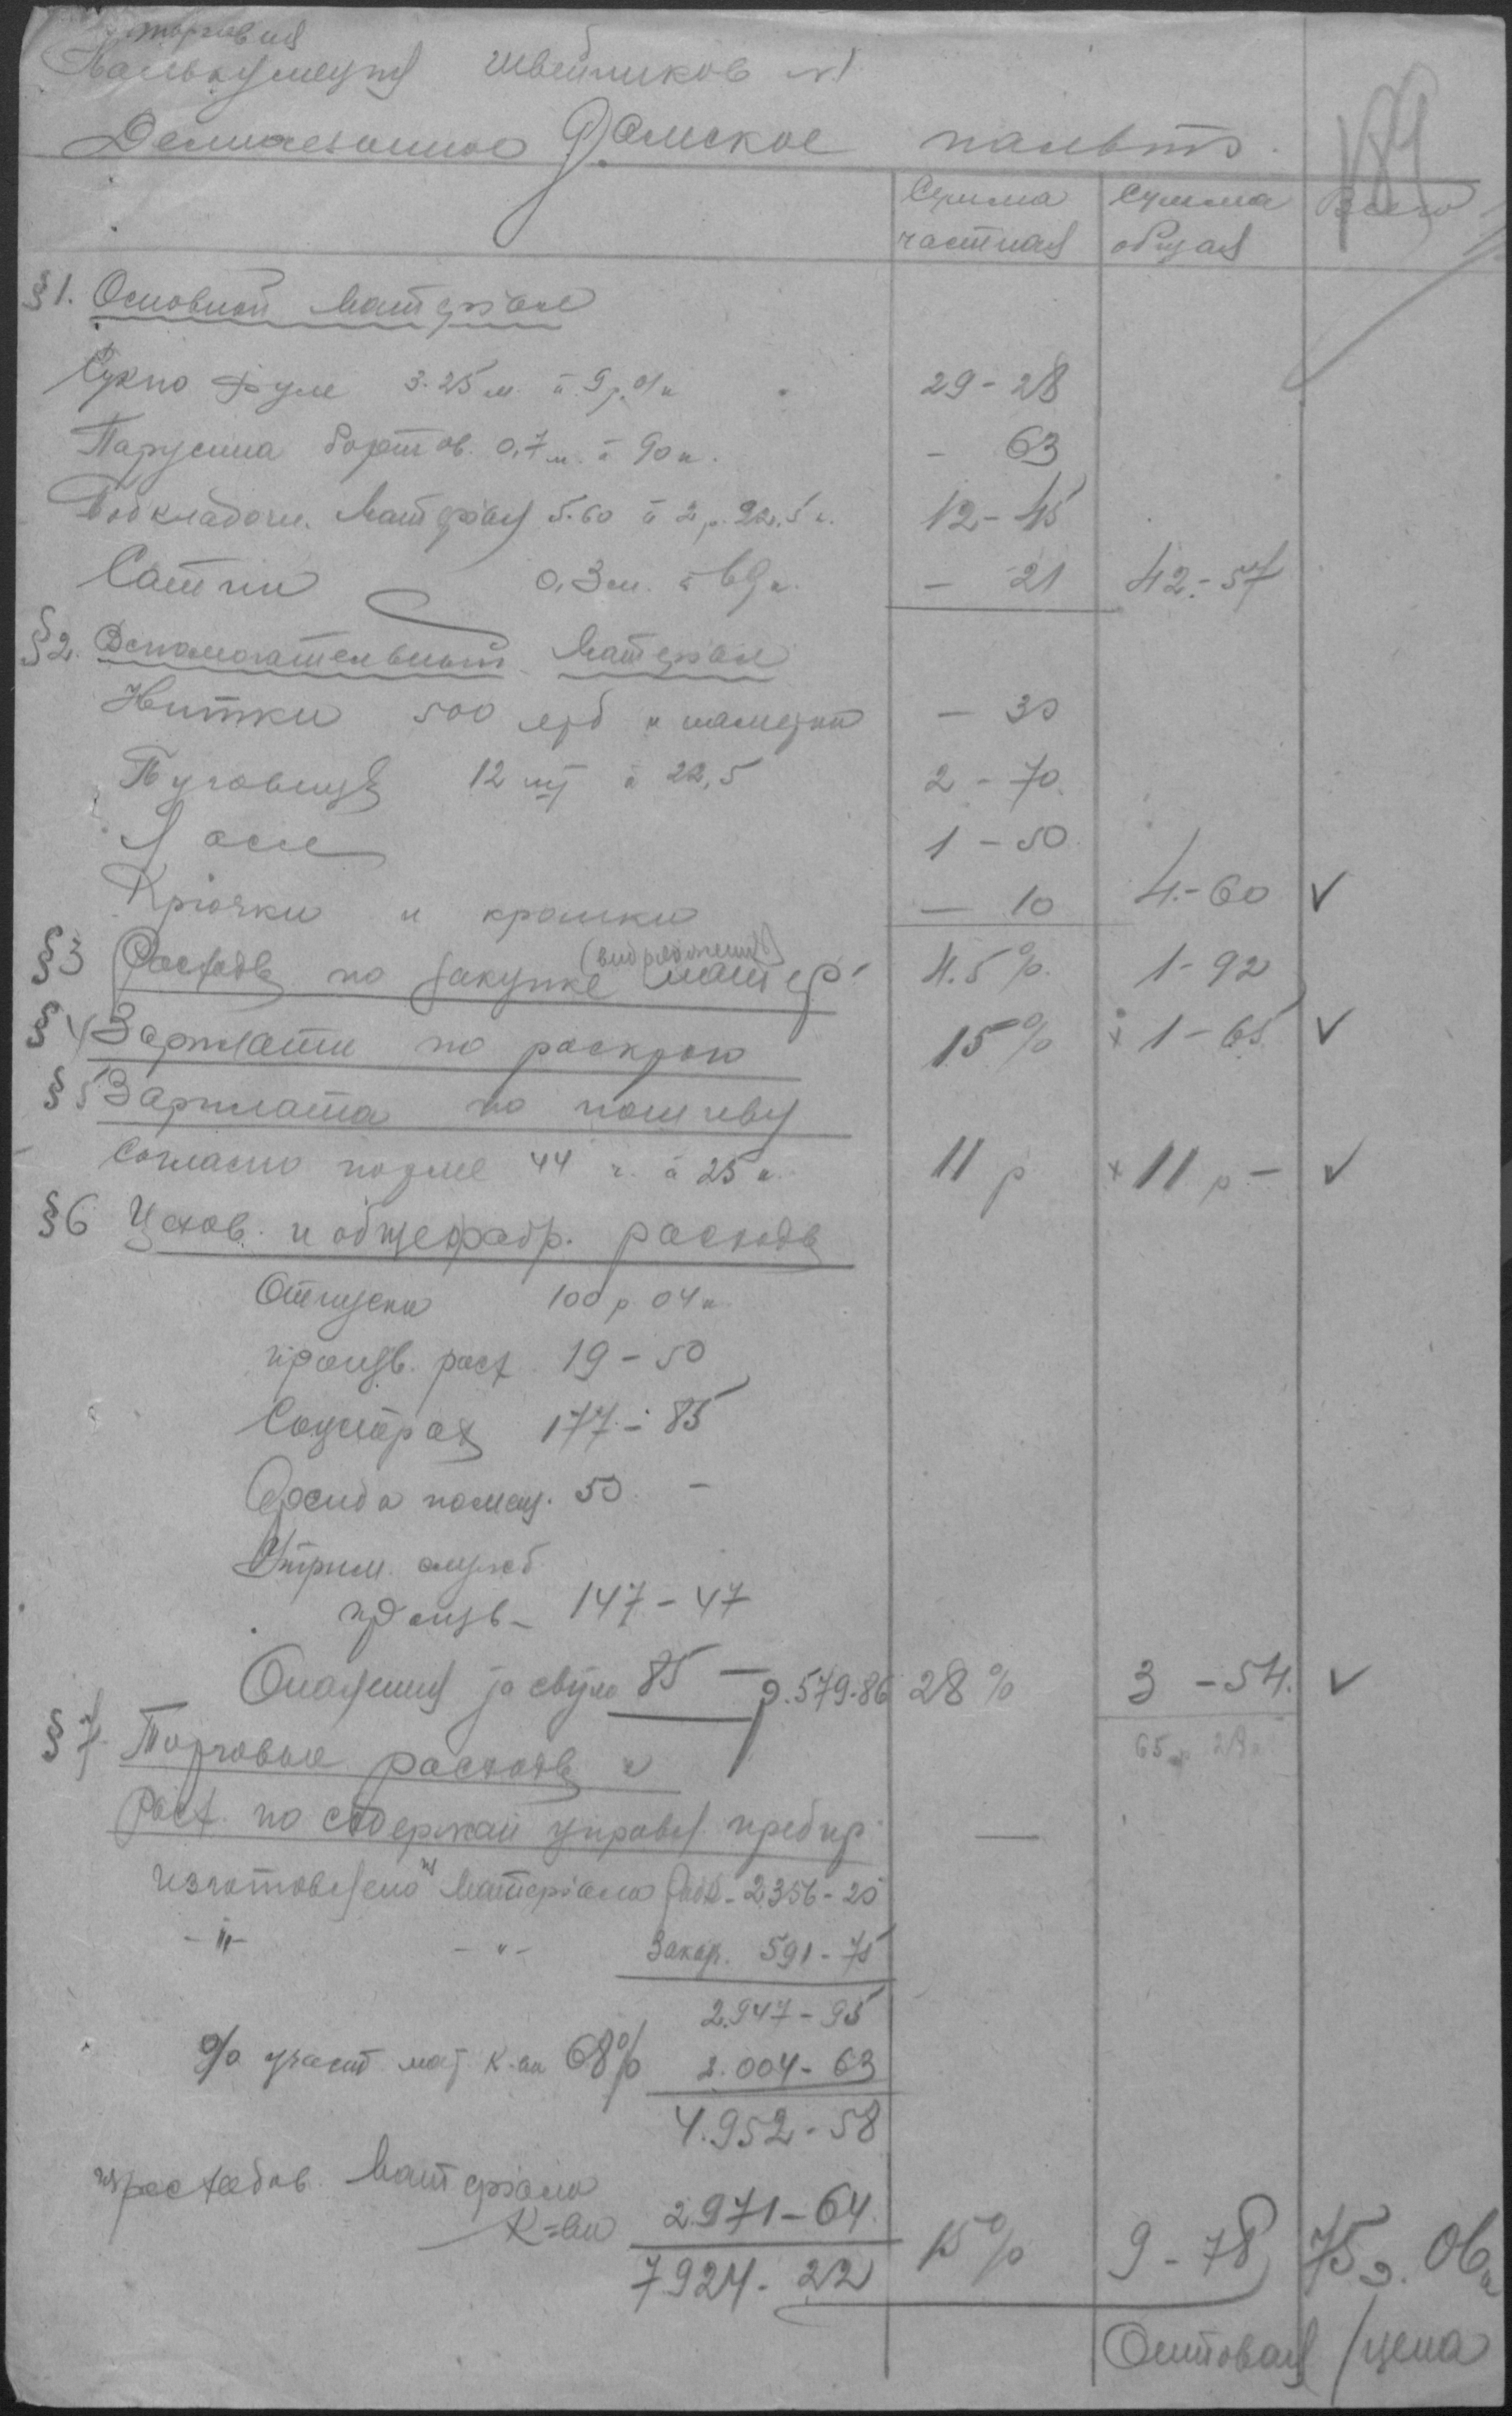 торговая
Калькуляция швейников №1
Демисезонное Дамское пальто.
189
Сумма частная
Сумма общая
Всего
§1. Основной материал
Сукно Фуле 3.25 м. à 9 р. 01 к 29-28
Парусина бортов. 0,7 м. à 90 к. - 63
Подкладочн. материал 5.60 à 2 р. 22,5 к. 12-45
Сатин 0,3 м. à 69 к. - 21 42-57
§2. Вспомогательный материал
Нитки 500 ярд и наметки - 30
Пуговицы 12 шт à 22,5 2-70
Лом 1-50
Крючки и кромки - 10 4-60 ✓
§3 Расходы по закупке матер. 4.5% 1-92
§4 Зарплата по раскрою 15% × 1-65 ✓
§5 Зарплата по пошиву
согласно норме 44 ч. à 25 к. 11 р × 11 р - ✓
§6 Цехов. и общефабр. расходы
Отпуски 100 р 04 к.
произв. расх. 19-50
Соцстрах 177-85
Аренда помещ. 50 -
Утрим. служб
произв- 147-47
Опалення за світло 85 - р. 579.86 28% 3-54. ✓
65 р 28 к
§7. Торговые расходы и
расх. по содержан управл. предпр -
изготовлено из материала 2356-20
-"- -"- Закар. 591-75
2.947-95
% участ мат К-ии 68% 2.004-63
4.952-58
израсходов. материала
К-ии 2971-64.
7924-22 15% 9-78 75 р. 06 к
Оптовая цена